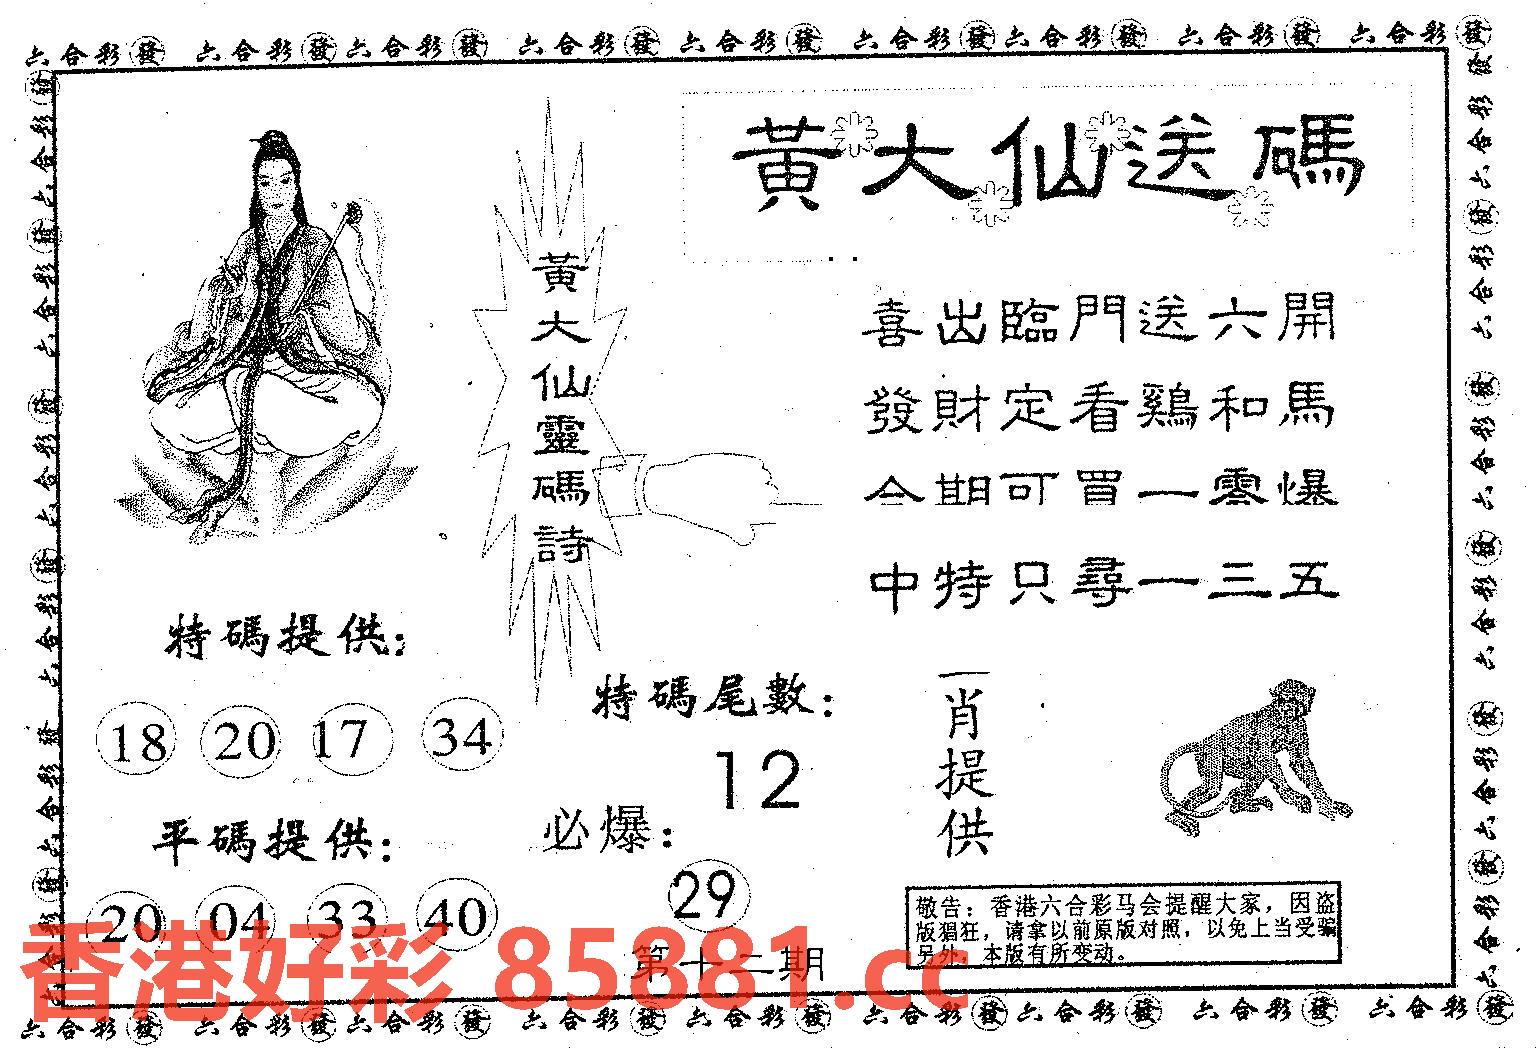 六合彩發 六合彩發六合彩發 六合彩發 六合彩發 六合彩發六合彩發 六合彩發 六合彩發
黃大仙送碼
黃大仙靈碼詩
喜出臨門送六開
發財定看鷄和馬
今期可買一零爆
中特只尋一三五
特碼提供：
18 20 17 34
平碼提供：
20 04 33 40
特碼尾數：
12
必爆：
29
第十二期
一肖提供
敬告：香港六合彩马会提醒大家，因盗
版猖狂，请拿以前原版对照，以免上当受骗
另外，本版有所变动。
香港好彩 85881.cc
六合彩發 六合彩發六合彩發 六合彩發 六合彩發 六合彩發六合彩發 六合彩發 六合彩發